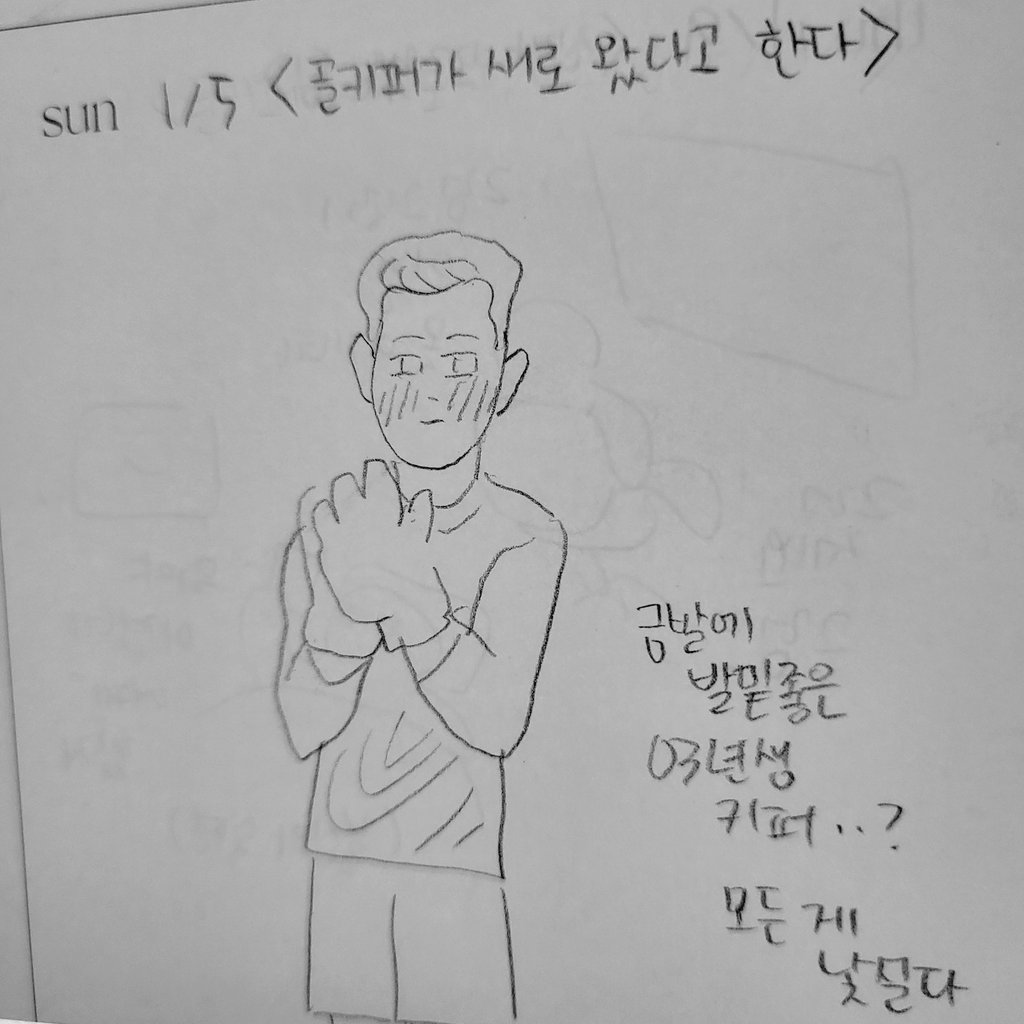 sun 1/5 <골키퍼가 새로 왔다고 한다>
금발에
발밑좋은
03년생
키퍼..?
모든 게
낯설다